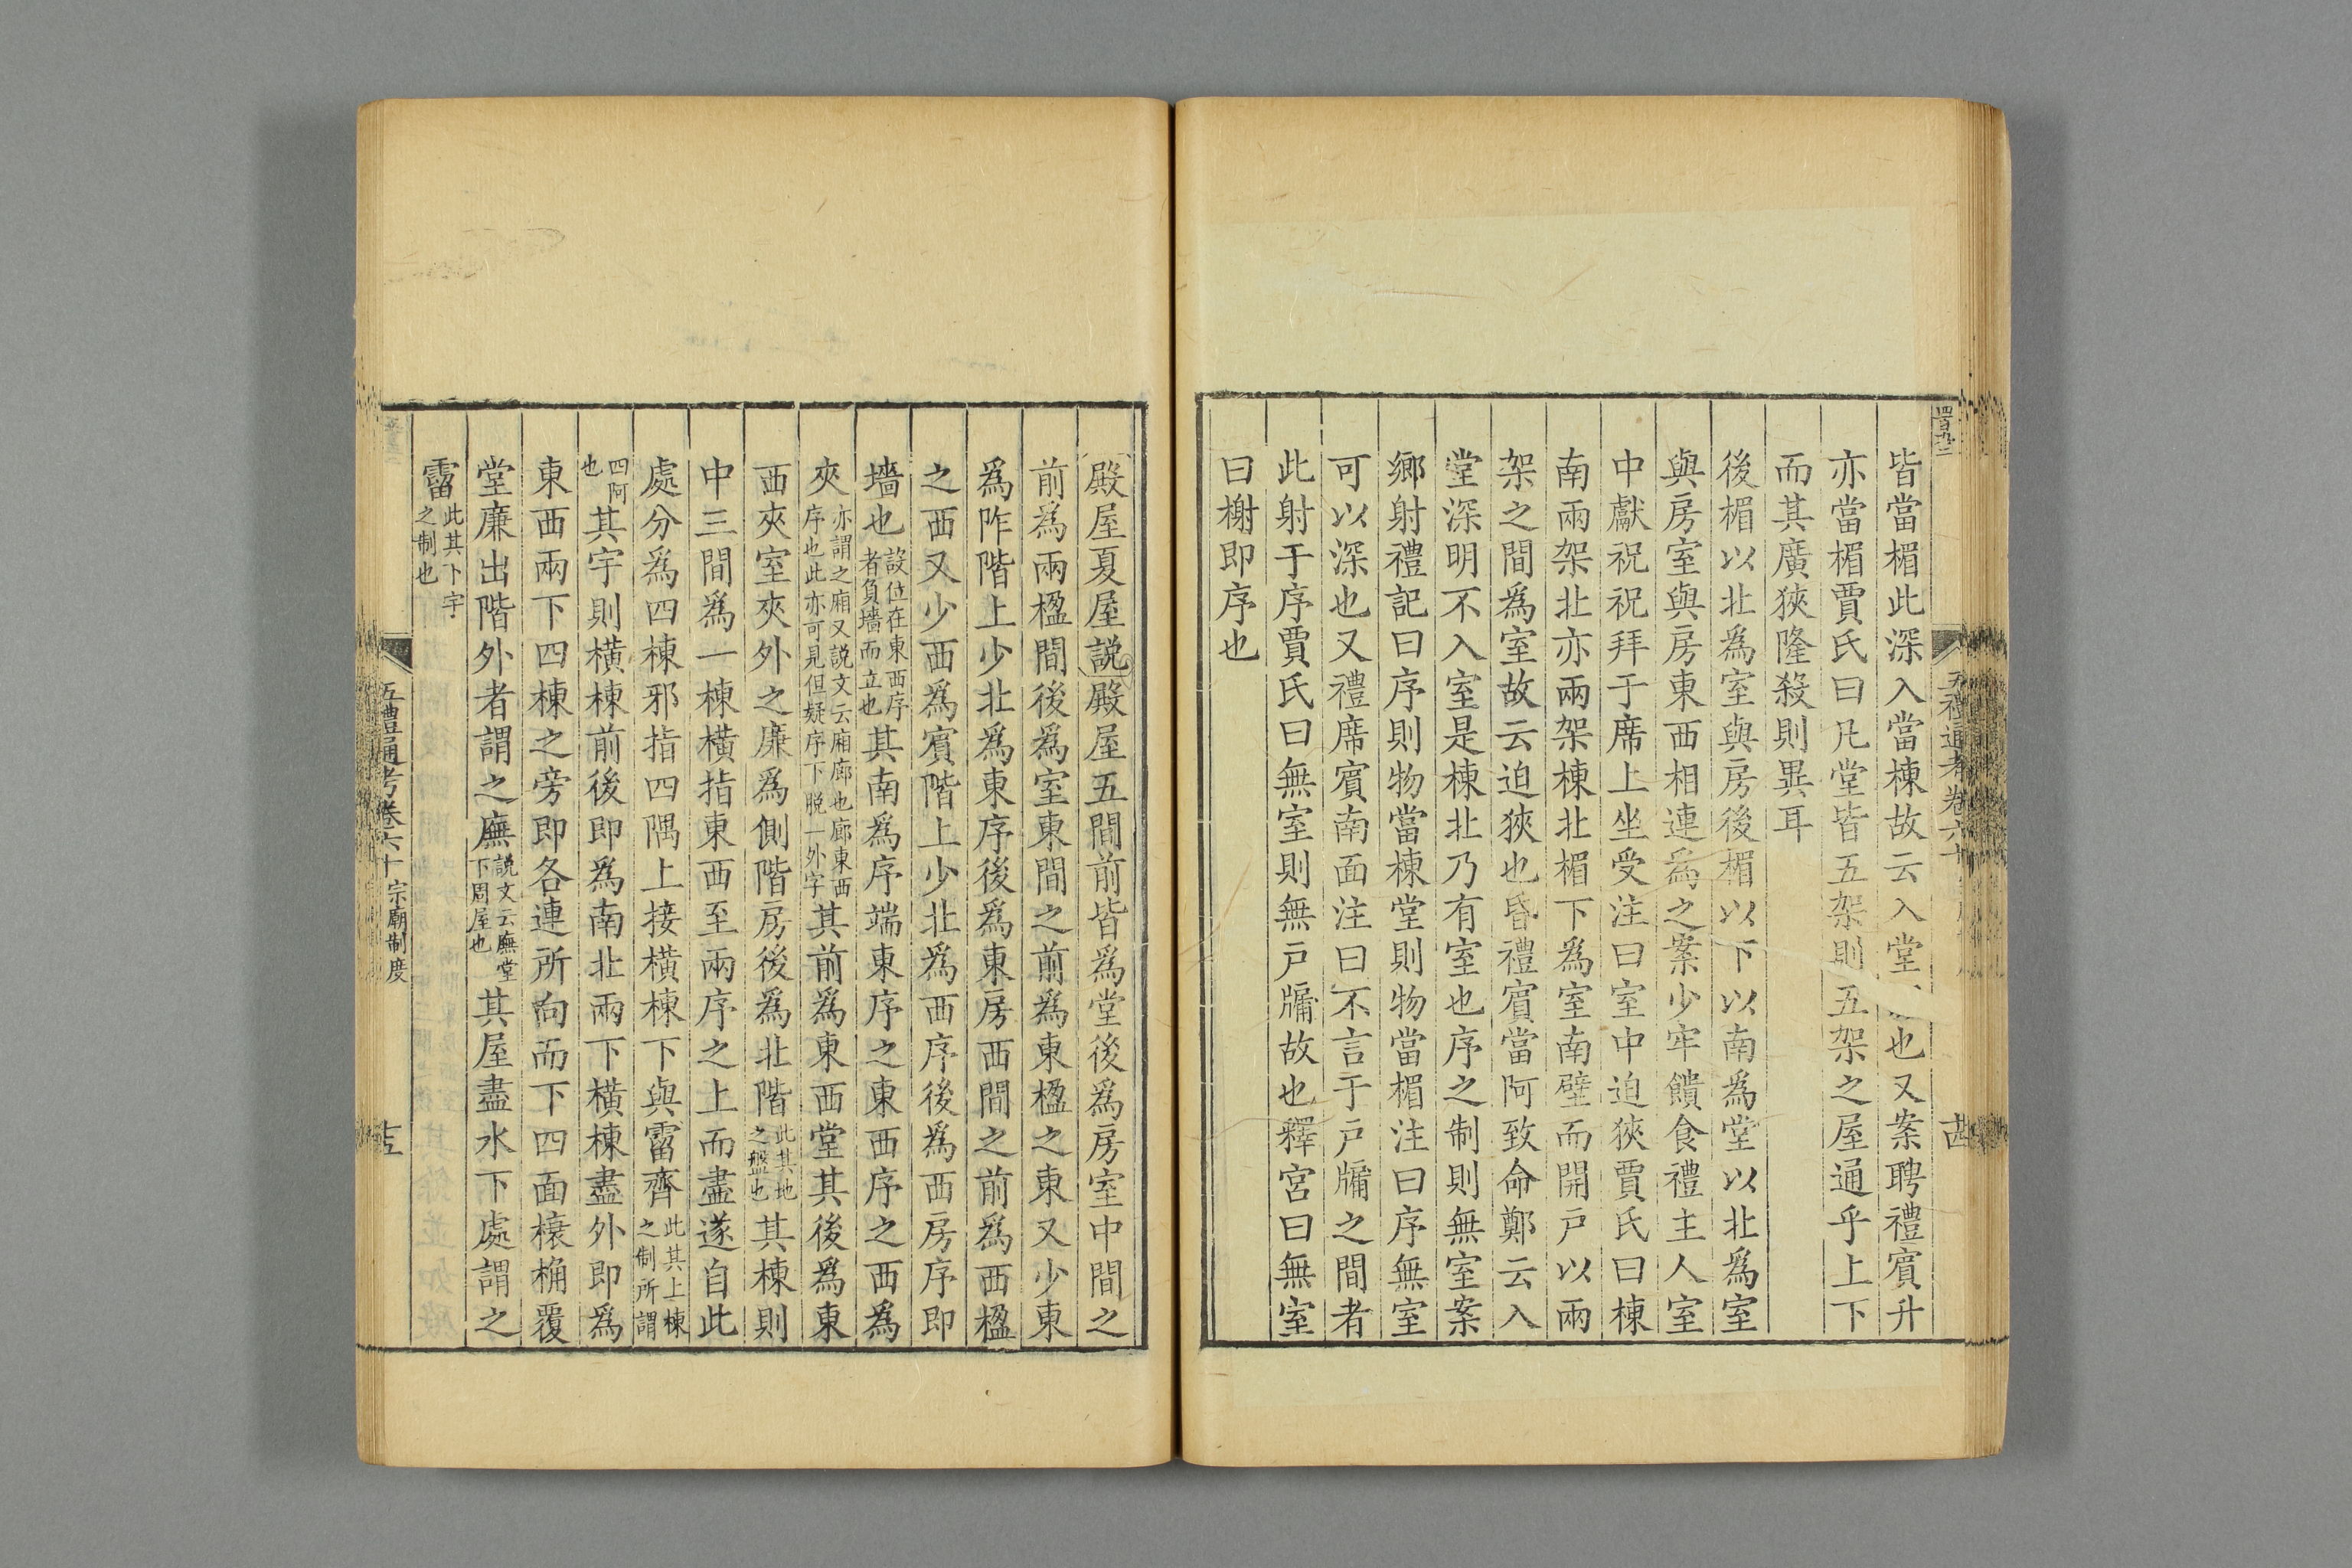 皆當楣此深入當棟故云入堂也又案聘禮賓升
亦當楣賈氏曰凡堂皆五架則五架之屋通乎上下
而其廣狹隆殺則異耳
後楣以北為室與房後楣以下以南為堂以北為室
與房室與房東西相連為之案少牢饋食禮主人室
中獻祝祝拜于席上坐受注曰室中迫狹賈氏曰棟
南兩架北亦兩架棟北楣下為室南壁而開戶以兩
架之間為室故云迫狹也昏禮賓當阿致命鄭云入
堂深明不入室是棟北乃有室也序之制則無室案
鄉射禮記曰序則物當棟堂則物當楣注曰序無室
可以深也又禮席賓南面注曰不言于戶牖之間者
此射于序賈氏曰無室則無戶牖故也釋宮曰無室
曰榭即序也
殿屋夏屋説殿屋五間前皆為堂後為房室中間之
前為兩楹間後為室東間之前為東楹之東又少東
為阼階上少北為東序後為東房西間之前為西楹
之西又少西為賓階上少北為西序後為西房序即
墻也設位在東西序者負墻而立也其南為序端東序之東西序之西為
夾亦謂之廂又説文云廂廊也廊東西序也此亦可見但疑序下脱一外字其前為東西堂其後為東
西夾室夾外之廉為側階房後為北階此其地之盤也其棟則
中三間為一棟橫指東西至兩序之上而盡遂自此
處分為四棟邪指四隅上接橫棟下與霤齊此其上棟之制所謂
四阿也其宇則橫棟前後即為南北兩下橫棟盡外即為
東西兩下四棟之旁即各連所向而下四面榱桷覆
堂廉出階外者謂之廡説文云廡堂下周屋也其屋盡水下處謂之
霤此其下宇之制也
五禮通考卷六十 宗廟制度